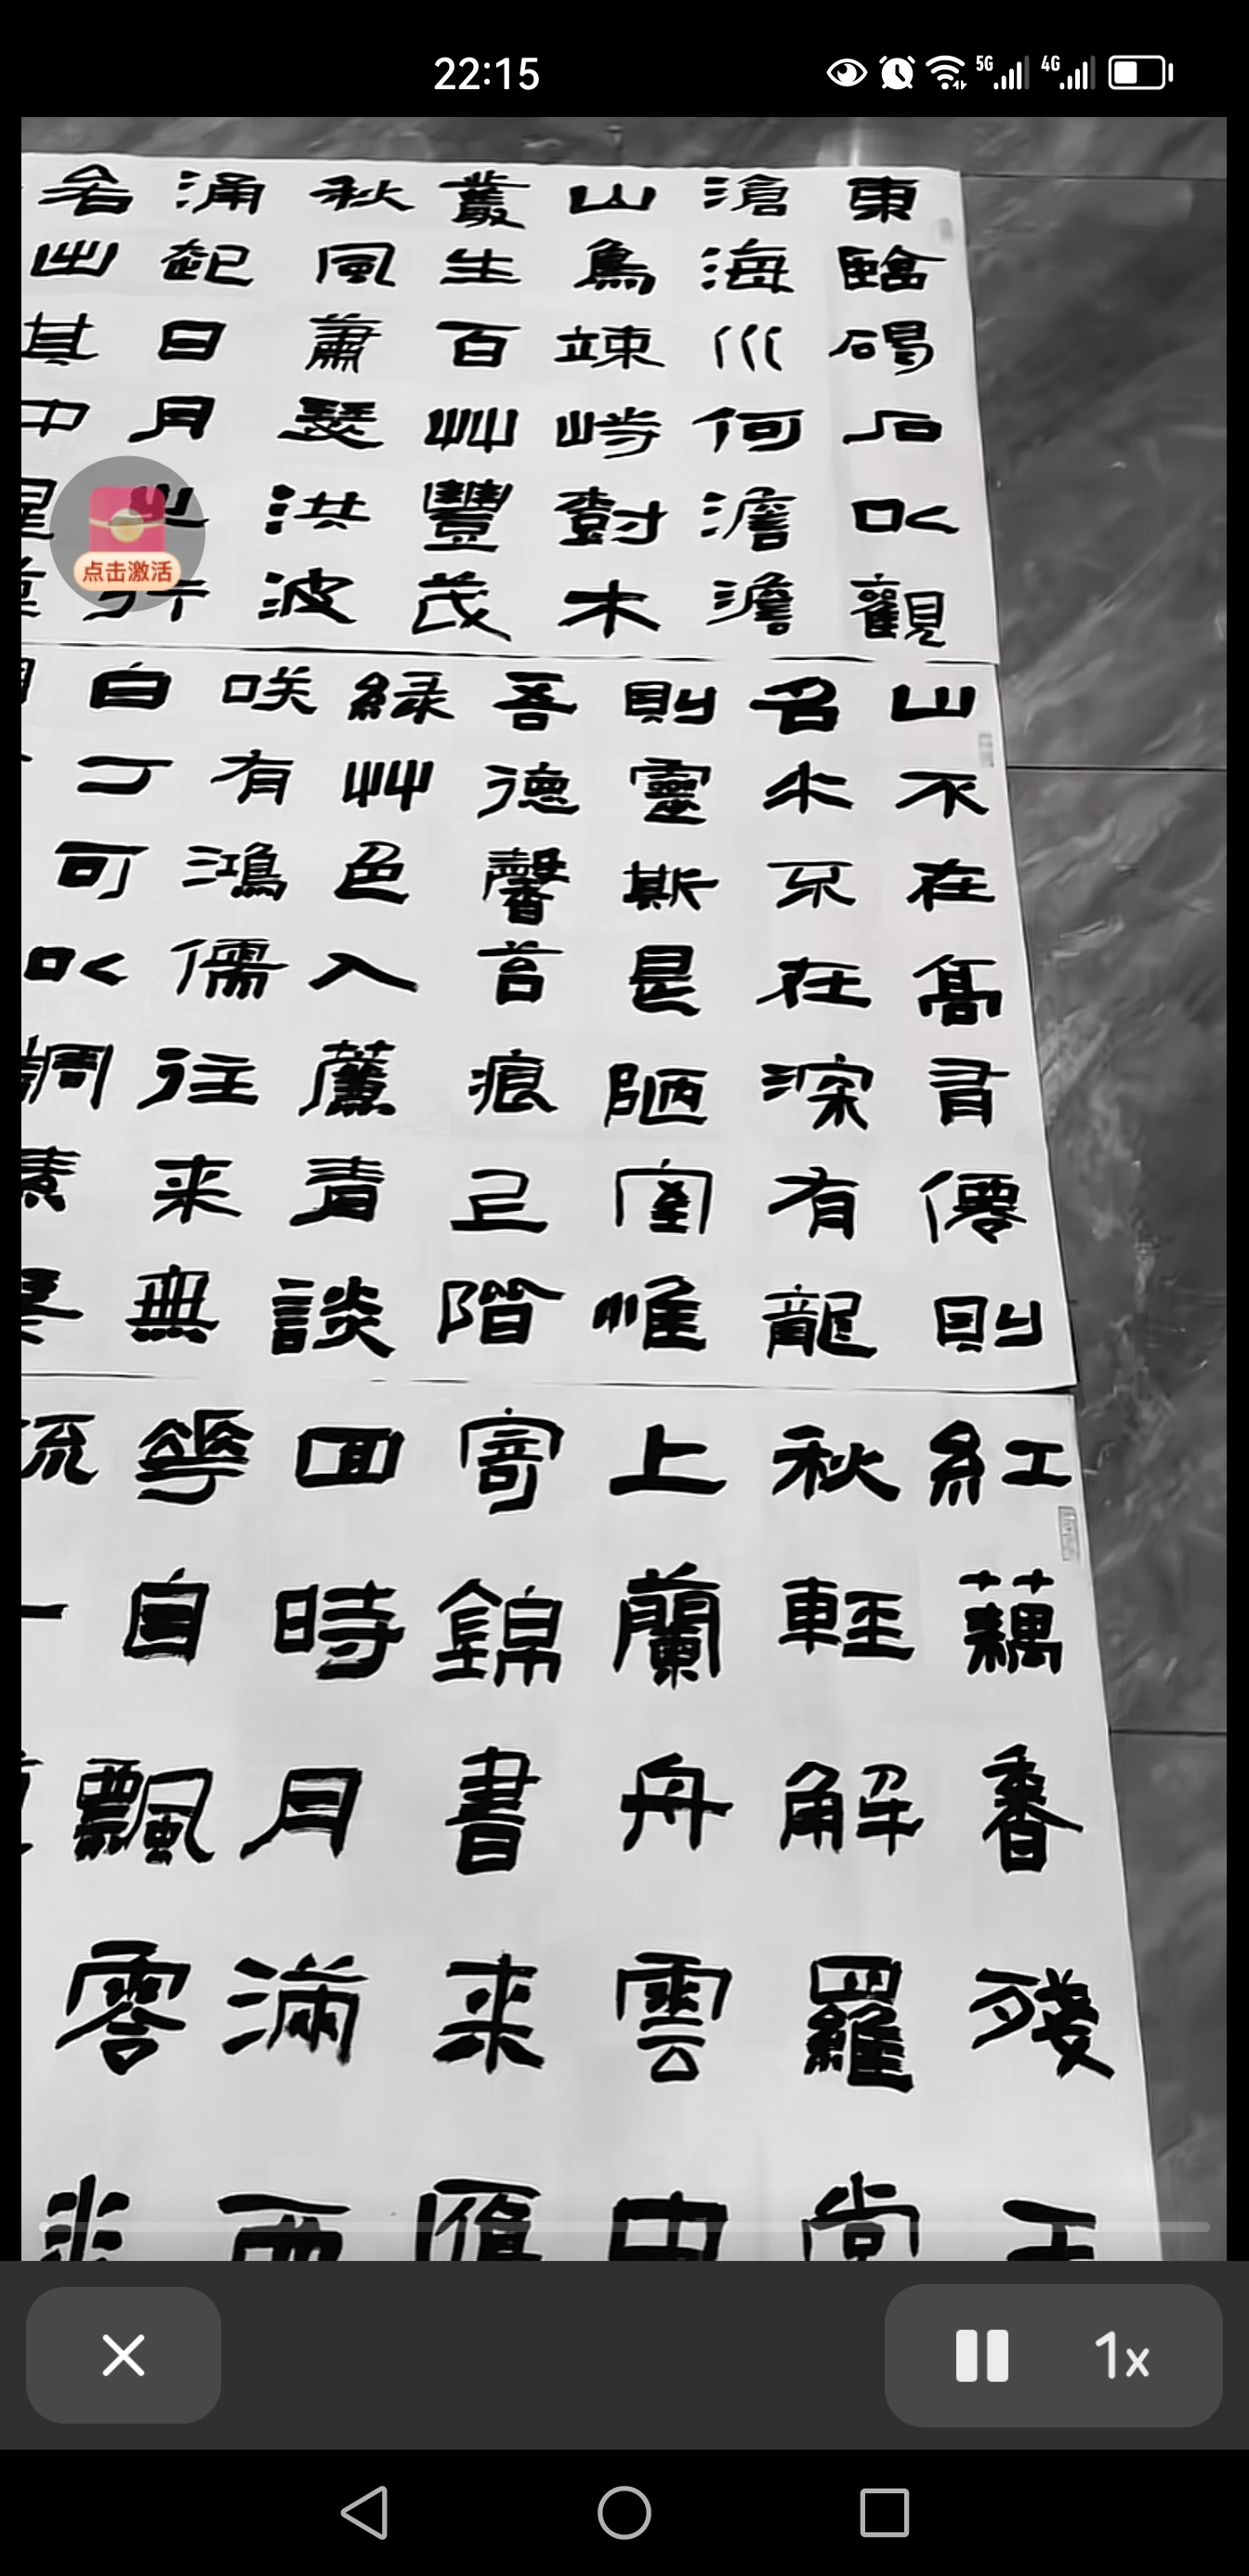 22:15
5G 4G
東臨碣石以觀
滄海水何澹澹
山島竦峙對木
叢生百艸豐茂
秋風蕭瑟洪波
涌起日月之行
若出其中星漢
点击激活
山不在高有僊則
名水不在深有龍
則靈斯是陋室惟
吾德馨苔痕上階
緑艸色入簾青談
咲有鴻儒往来無
白丁可以調素琴
紅藕香殘玉
秋輕解羅裳
上蘭舟雲中
寄錦書来雁
回時月滿西
華自飄零水
流一
1x